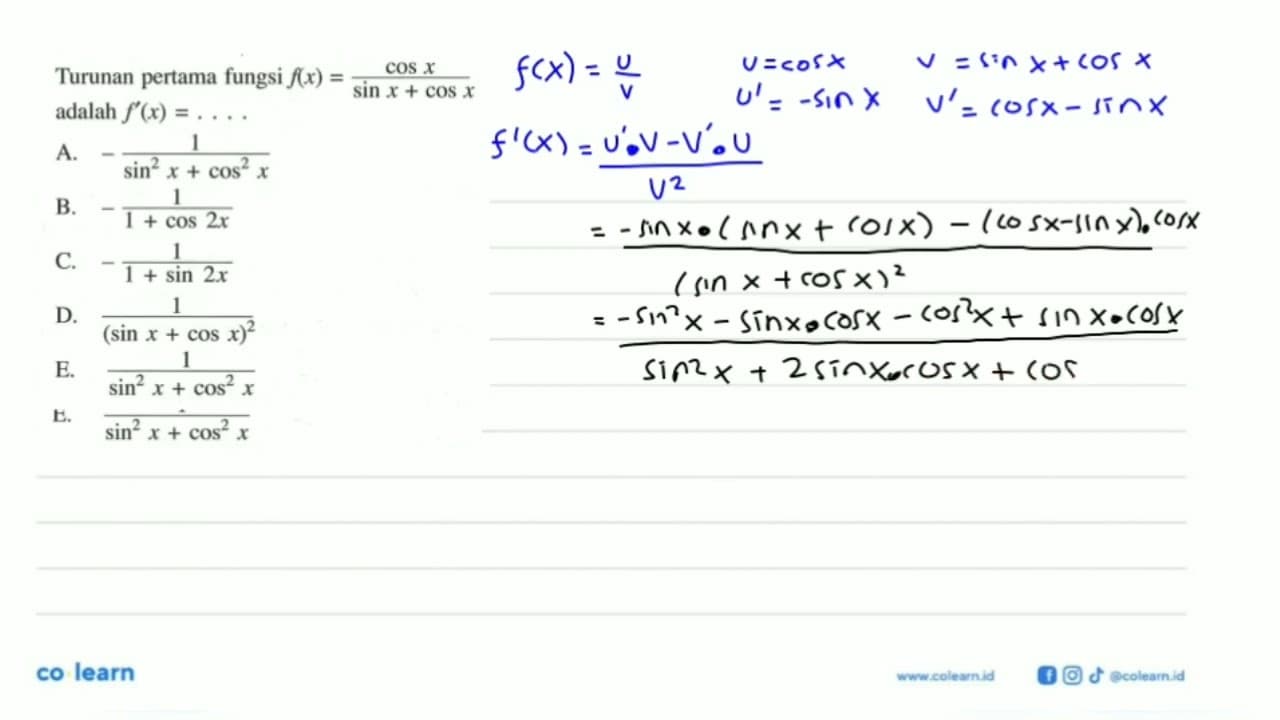 Turunan pertama fungsi f(x) = cos x / sin x + cos x
adalah f'(x) = . . . .
A. − 1 / sin² x + cos² x
B. − 1 / 1 + cos 2x
C. − 1 / 1 + sin 2x
D. 1 / (sin x + cos x)²
E. 1 / sin² x + cos² x
sin² x + cos² x
f(x) = U / V
U = cos x
V = sin x + cos x
U' = -sin x
V' = cos x - sin x
f'(x) = U'•V - V'•U / V²
= -sin x•(sin x + cos x) - (cos x - sin x).cos x
(sin x + cos x)²
= -sin²x - sin x•cos x - cos²x + sin x•cos x
sin²x + 2 sin x•cos x + cos
co learn
www.colearn.id
@colearn.id